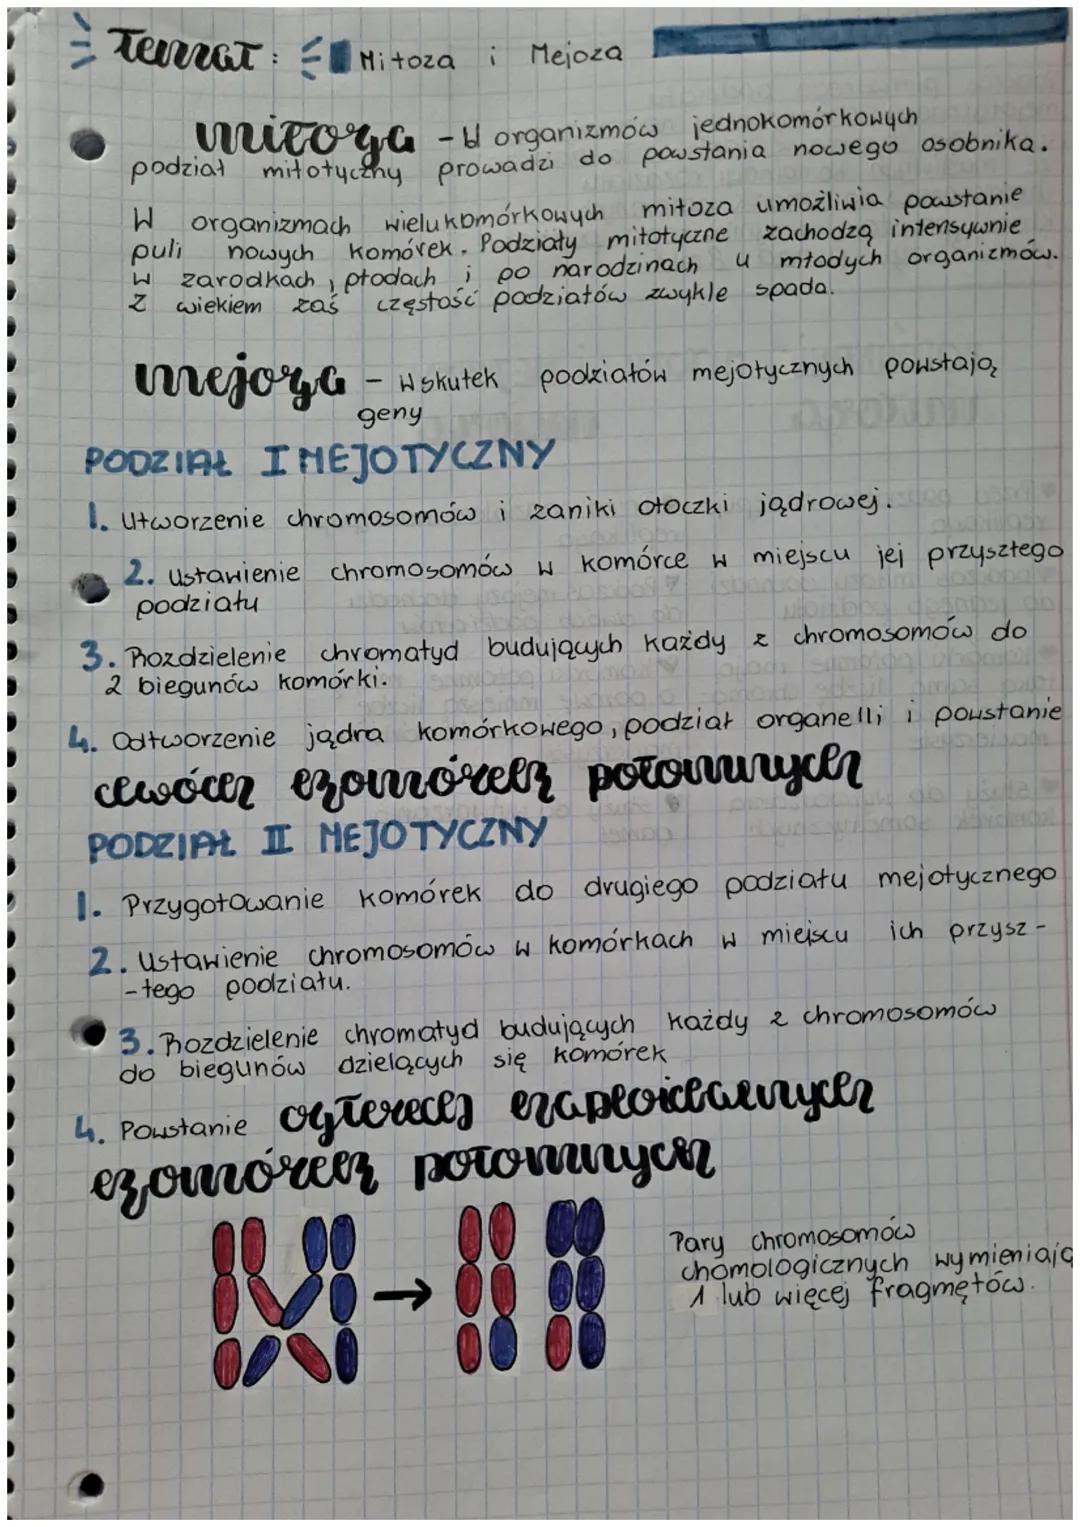 Temat: Mitoza i Mejoza
mitoza - W organizmów jednokomórkowych
podział mitotyczny prowadzi do powstania nowego osobnika.
W organizmach wielukomórkowych mitoza umożliwia powstanie
puli nowych komórek. Podziały mitotyczne zachodzą intensywnie
w zarodkach, płodach i po narodzinach u młodych organizmów.
Z wiekiem zaś częstość podziałów zwykle spada.
mejoza - Wskutek podziałów mejotycznych powstają
geny
PODZIAŁ I MEJOTYCZNY
1. Utworzenie chromosomów i zaniki otoczki jądrowej.
2. Ustawienie chromosomów w komórce w miejscu jej przyszłego
podziału
3. Rozdzielenie chromatyd budujących każdy z chromosomów do
2 biegunów komórki.
4. Odtworzenie jądra komórkowego, podział organelli i powstanie
dwóch komórek potomnych
PODZIAŁ II MEJOTYCZNY
1. Przygotowanie komórek do drugiego podziału mejotycznego
2. Ustawienie chromosomów w komórkach w miejscu ich przysz-
-łego podziału.
3. Rozdzielenie chromatyd budujących każdy z chromosomów
do biegunów dzielących się komórek
4. Powstanie czterech haploidalnych
komórek potomnych
Pary chromosomów
chomologicznych wymieniają
1 lub więcej fragmętów.